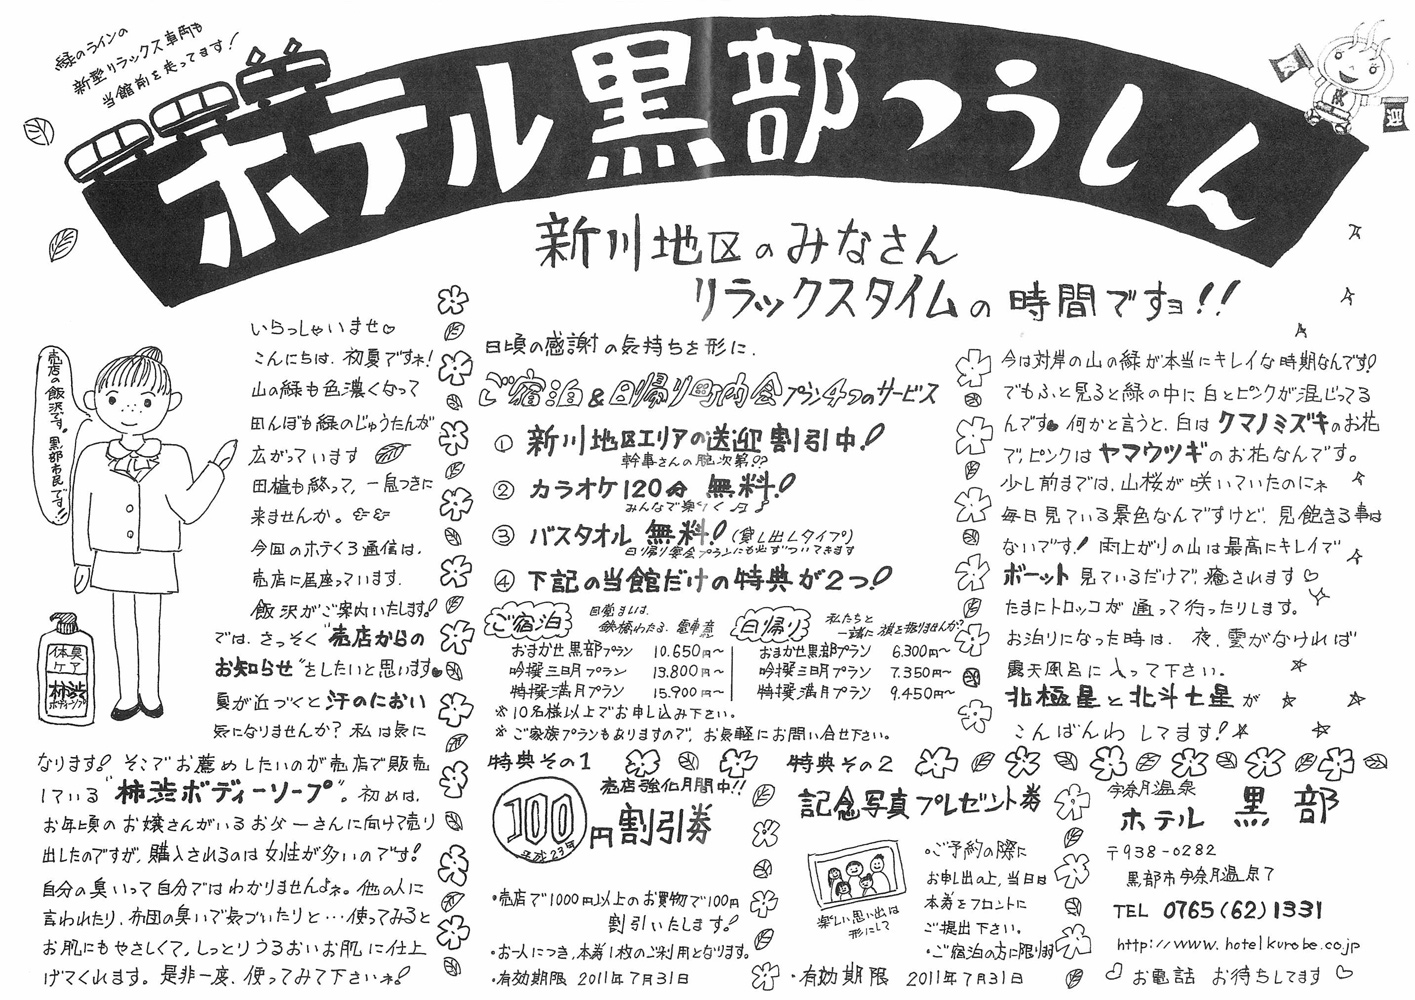 緑のラインの
新型リラックス車両も
当館前を走ってます！
ホテル黒部つうしん
新川地区のみなさん
リラックスタイムの時間ですョ!!
売店の飯沢です。黒部市民です!!
体臭
ケア
柿渋
ボディーソープ
いらっしゃいませ♡
こんにちは、初夏ですネ！
山の緑も色濃くなって
田んぼも緑のじゅうたんが
広がっています
田植も終って、一息つきに
来ませんか。
今回のホテくろ通信は、
売店に居座っています、
飯沢がご案内いたします！
では、さっそく“売店からの
お知らせ”をしたいと思います♥
夏が近づくと汗のにおい
気になりませんか？私は気に
なります！そこでお薦めしたいのが売店で販売
している“柿渋ボディーソープ”。初めは、
お年頃のお嬢さんがいるお父ーさんに向けて売り
出したのですが、購入されるのは女性が多いのです！
自分の臭いって自分ではわかりませんよネ。他の人に
言われたり、布団の臭いで気づいたりと…使ってみると
お肌にもやさしくて、しっとりうるおいお肌に仕上
げてくれます。是非一度、使ってみて下さいネ！
日頃の感謝の気持ちを形に、
ご宿泊＆日帰り町内会プラン4つのサービス
① 新川地区エリアの送迎割引中！
幹事さんの腕次第!?
② カラオケ120分 無料！
みんなで楽しく♫♪
③ バスタオル 無料！（貸し出しタイプ）
日帰り宴会プランにも必ずついてきます
④ 下記の当館だけの特典が2つ！
ご宿泊
目覚ましは、
鉄橋わたる、電車音
おまかせ黒部プラン 10.650円～
吟撰三日月プラン 13.800円～
特撰満月プラン 15.900円～
日帰り
私たちと
一緒に旗を振りませんか？
おまかせ黒部プラン 6.300円～
吟撰三日月プラン 7.350円～
特撰満月プラン 9.450円～
※10名様以上でお申し込み下さい。
※ご家族プランもありますので、お気軽にお問い合せ下さい。
特典その1
売店強化月間中!!
100円割引券
平成23年
・売店で1000円以上のお買物で100円
割引いたします！
・お一人につき、本券1枚のご利用となります。
・有効期限 2011年7月31日
特典その2
記念写真プレゼント券
楽しい思い出は
形にして
・ご予約の際に
お申し出の上、当日は
本券をフロントに
ご提出下さい。
・ご宿泊の方に限ります
・有効期限 2011年7月31日
今は対岸の山の緑が本当にキレイな時期なんです！
でもふと見ると緑の中に白とピンクが混じってる
んです♥何かと言うと、白はクマノミズキのお花
で、ピンクはヤマウツギのお花なんです。
少し前までは、山桜が咲いていたのにネ
毎日見ている景色なんですけど、見飽きる事は
ないです！雨上がりの山は最高にキレイで
ボーット見ているだけで、癒されます♡
たまにトロッコが通って行ったりします。
お泊りになった時は、夜、雲がなければ
露天風呂に入って下さい。
北極星と北斗七星が
こんばんわしてます！
宇奈月温泉
ホテル 黒部
〒938-0282
黒部市宇奈月温泉7
TEL 0765(62)1331
http://www.hotelkurobe.co.jp
♡お電話 お待ちしてます♡